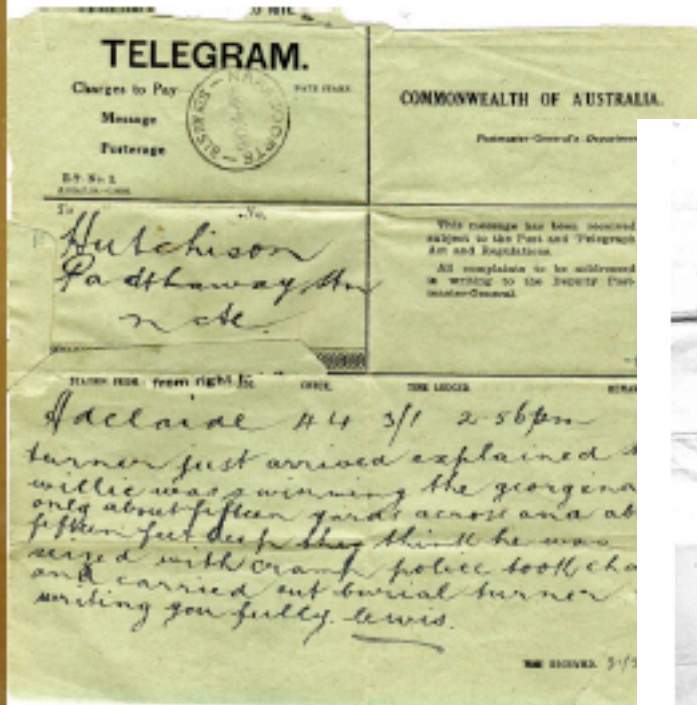 TELEGRAM.
Charges to Pay
Message
Porterage
DATE STAMP.
COMMONWEALTH OF AUSTRALIA.
Postmaster-General's Department
To
No.
Hutchison
Padthaway Stn
n cte.
This message has been received
subject to the Post and Telegraph
Act and Regulations.
All complaints to be addressed
in writing to the Deputy Post-
master-General.
STATION FROM. from right
WORDS.
TIME LODGED.
Adelaide 44 3/1 2-56pm
turner just arrived explained
willie was swimming the georgina
only about fifteen yards across and ab
fifteen feet deep they think he was
seized with cramp police took cha
and carried out burial turner
writing you fully. lewis.
TIME RECEIVED.